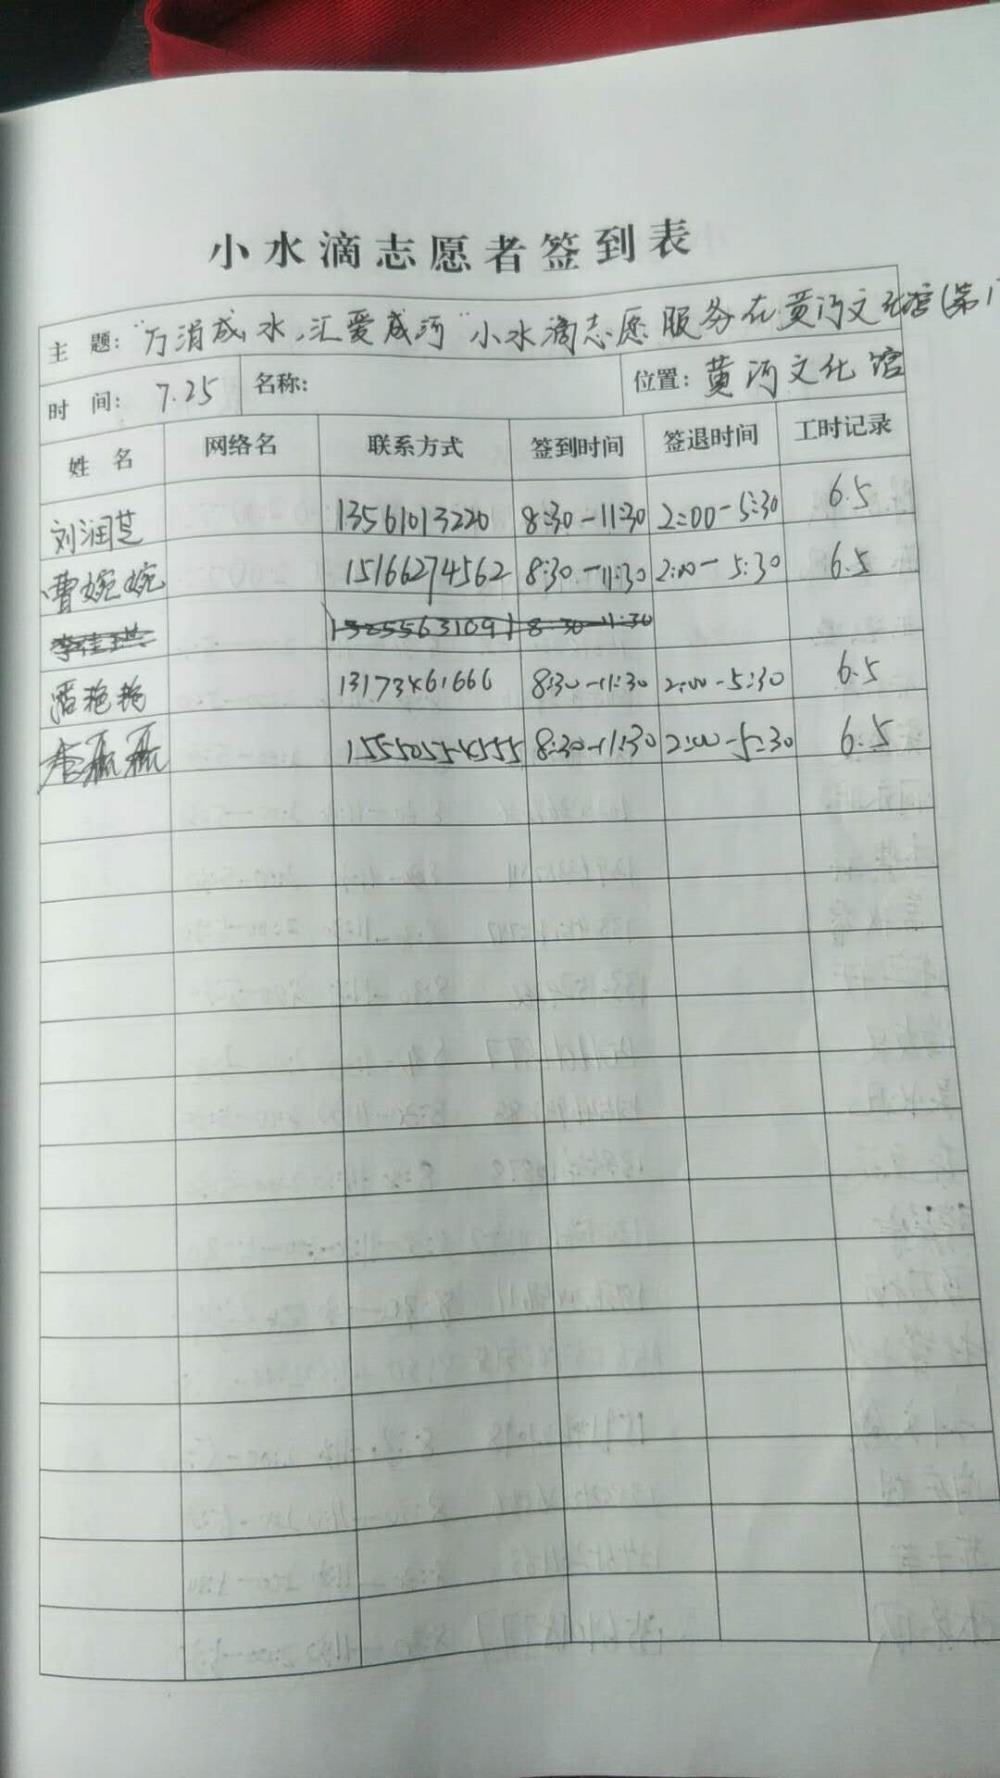 小水滴志愿者签到表
主 题: "万涓成水,汇爱成河" 小水滴志愿服务在黄河文化馆(第1
时 间: 7.25 名称: 位置: 黄河文化馆
姓 名 网络名 联系方式 签到时间 签退时间 工时记录
刘润芝 13561013220 8:30-11:30 2:00-5:30 6.5
曹婉婉 15166274562 8:30-11:30 2:00-5:30 6.5
李佳琪 13255631091 8:30-11:30
潘艳艳 13173461666 8:30-11:30 2:00-5:30 6.5
8:30-11:30 2:00-5:30 6.5